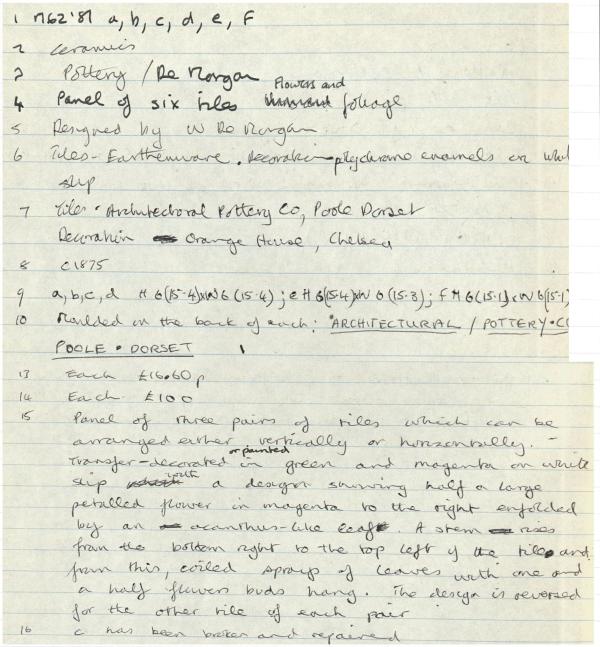 1 M62'87 a, b, c, d, e, F
2 Ceramics
3 Pottery / De Morgan
4 Panel of six tiles Flowers and foliage
5 Designed by W De Morgan
6 Tiles - Earthenware. Decoration - polychrome enamels on whi
slip
7 Tiles - Architectural Pottery Co, Poole Dorset
Decoration Orange House, Chelsea
8 c1875
9 a, b, c, d H 6(15.4)xW 6(15.4); e H 6(15.4)xW 6(15.3); f H 6(15.1)xW 6(15.1)
10 Moulded on the back of each: ARCHITECTURAL / POTTERY · CO
POOLE · DORSET
13 Each £16.60p
14 Each £100
15 Panel of three pairs of tiles which can be
arranged either vertically or horizontally. -
Transfer-decorated or painted in green and magenta on white
slip with a design showing half a large
petalled flower in magenta to the right enfolded
by an acanthus-like leaf. A stem rises
from the bottom right to the top left of the tile and
from this, coiled sprays of leaves with one and
a half flowers buds hang. The design is reversed
for the other tile of each pair
16 c has been broken and repaired